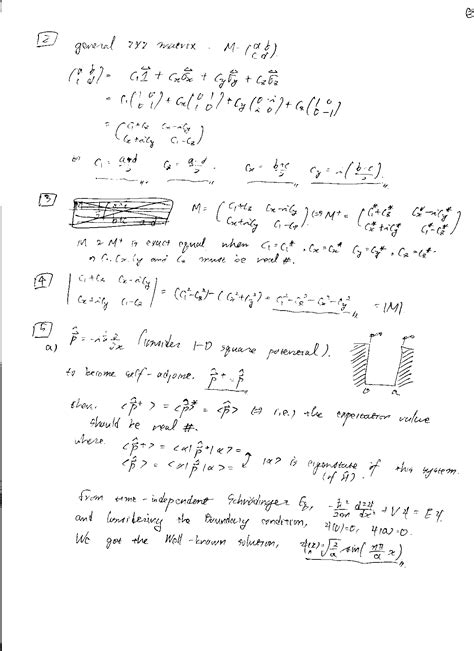 [2] general 2x2 matrix. M = (a b / c d)
(a b / c d) = C₁1 + Cxσx + Cyσy + Czσz
= C₁(1 0 / 0 1) + Cx(0 1 / 1 0) + Cy(0 -i / i 0) + Cz(1 0 / 0 -1)
= (C₁+Cz Cx-iCy / Cx+iCy C₁-Cz)
C₁ = (a+d)/2 Cz = (a-d)/2 Cx = (b+c)/2 Cy = i(b-c)/2
[3] M = (C₁+Cz Cx-iCy / Cx+iCy C₁-Cz) M⁺ = (C₁*+Cz* Cx*-iCy* / Cx*+iCy* C₁*-Cz*)
M & M⁺ is exact equal when C₁=C₁*, Cx=Cx* Cy=Cy*, Cz=Cz*
must be real #.
[4] |C₁+Cz Cx-iCy / Cx+iCy C₁-Cz| = (C₁²-Cz²)-(Cx²+Cy²) = C₁²-Cz²-Cx²-Cy² = |M|
[5]
a) p̂ = -iħ ∂/∂x (consider 1-D square potential).
to become self-adjoint. p̂⁺ = p̂
then. <p̂⁺> = <p̂>* = <p̂> (i.e.) the expectation value
should be real #.
where. <p̂⁺> = <α|p̂⁺|α> =
<p̂> = <α|p̂|α> = |α> is eigenstate of this system.
(of Ĥ).
0 a
from time-independent Schrödinger Eq, -ħ²/2m d²ψ/dx² + Vψ = Eψ.
and considering the boundary condition, ψ(0)=0, ψ(a)=0.
We got the Well-known solution, ψn(x) = √(2/a) sin(nπ/a x)